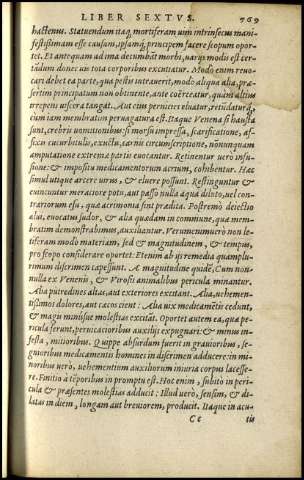 LIBER SEXTVS. 769
hactenus. Statuendum itaq; mortiferam uim intrinsecus mani
festißimam esse causam, ipsamq; principem facere scopum opor
tet. Et antequam ad ima decumbāt morbi, uarijs modis est cer
tādum donec uis tota corporibus excutiatur. Modo enim reuo
cari debet ea parte, qua pestis intrauerit, modo aliqua alia, præ
sertim principatum non obtinente, ante coërceatur, quàm altius
irrepens uiscera tangat. Aut eius pernicies eluatur, retūdatur q;
cum iam membratim peruagatura est. Itaque Venena si hausta
sunt, crebris uomitionibus: si morsu impressa, scarificatione, af-
fixa cucurbitula, exuctu, carnis circunscriptione, nōnunquam
amputatione extremæ partis euocantur. Retinentur uerò insu-
sione: & imposita medicamentorum acrium, cohibentur. Hac
simul utique arcere uirus, & eluere possunt. Restinguntur &
euincuntur meraciore potu, aut passo nulla aqua diluto, uel con
trariorum esu, quæ acrimonia sint prædita. Postremò deiectio
alui, euocatus sudor, & alia quædam in commune, quæ mem-
bratim demonstrabimus, auxiliantur. Verumenimuerò non le-
tiferam modo materiam, sed & magnitudinem, & tempus,
pro scopo considerare oportet: Etenim ab ijs remedia quamplu-
rimum discrimen capessunt. A magnitudine quidē, Cum non-
nulla ex Venenis, & Virosis animalibus pericula minantur.
Alia putredines altas, aut exteriores excitant. Alia, uehemen-
tißimos dolores, aut cæcos cient: Alia uix medicamētis cedunt,
& magis minúsue molestias excitāt. Oportet autem ea, quæ pe-
ricula ferunt, pernicioribus auxilijs expugnari: & minus in-
festa, mitioribus. Quippe absurdum fuerit in grauioribus, se-
gnioribus medicamentis homines in discrimen adducere: in mi-
noribus uerò, uehementium auxiliorum iniuria corpus lacesse-
re. Finitio à tēporibus in promptu est. Hoc enim, subitò in peri-
cula & præsentes molestias adducit: Illud uerò, sensim, & di-
latas in diem, longam aut breuiorem, producit. Itaque in acu-
Cc tis